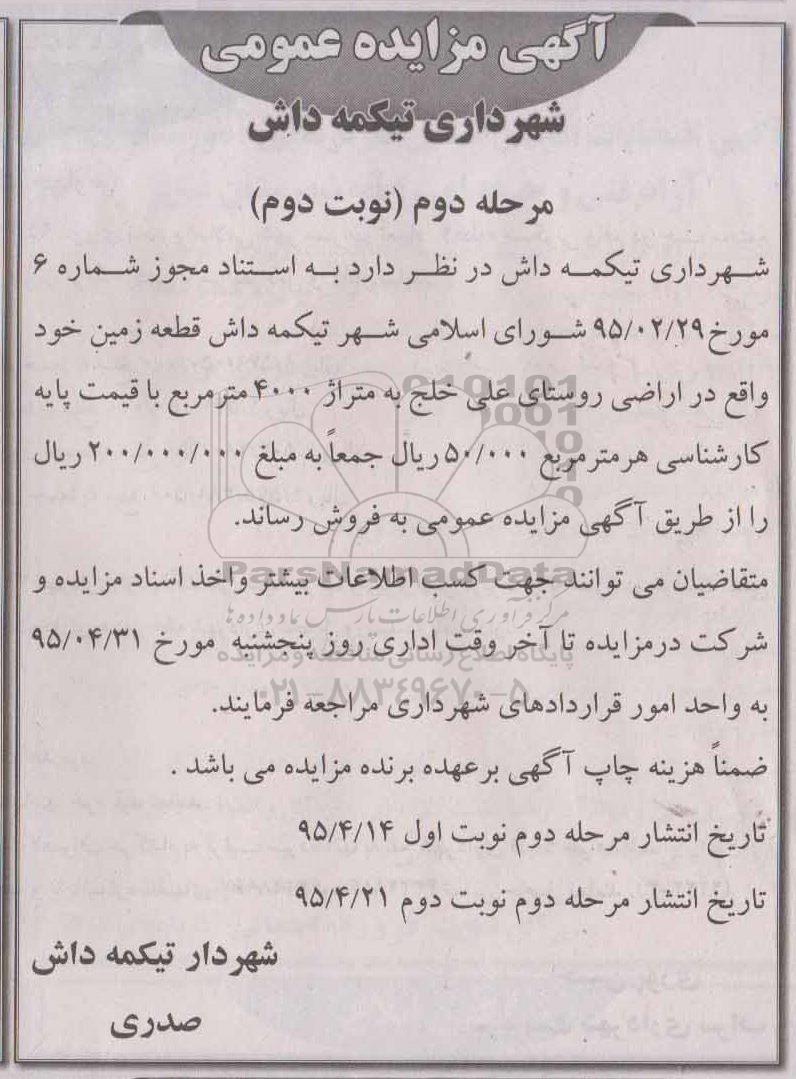 آگهی مزایده عمومی
شهرداری تیکمه داش
مرحله دوم (نوبت دوم)
شهرداری تیکمه داش در نظر دارد به استناد مجوز شماره ۶
مورخ ۹۵/۰۲/۲۹ شورای اسلامی شهر تیکمه داش قطعه زمین خود
واقع در اراضی روستای علی خلج به متراژ ۴۰۰۰ مترمربع با قیمت پایه
کارشناسی هرمترمربع ۵۰/۰۰۰ ریال جمعاً به مبلغ ۲۰۰/۰۰۰/۰۰۰ ریال
را از طریق آگهی مزایده عمومی به فروش رساند.
ParsNamadData
متقاضیان می توانند جهت کسب اطلاعات بیشتر واخذ اسناد مزایده و
مرکز فرآوری اطلاعات پارس نماد داده ها
شرکت درمزایده تا آخر وقت اداری روز پنجشنبه مورخ ۹۵/۰۴/۳۱
پایگاه اطلاع رسانی مناقصه و مزایده
۰۲۱-۸۸۳۴۹۶۷۰-۵
به واحد امور قراردادهای شهرداری مراجعه فرمایند.
ضمناً هزینه چاپ آگهی برعهده برنده مزایده می باشد .
تاریخ انتشار مرحله دوم نوبت اول ۹۵/۴/۱۴
تاریخ انتشار مرحله دوم نوبت دوم ۹۵/۴/۲۱
شهردار تیکمه داش
صدری